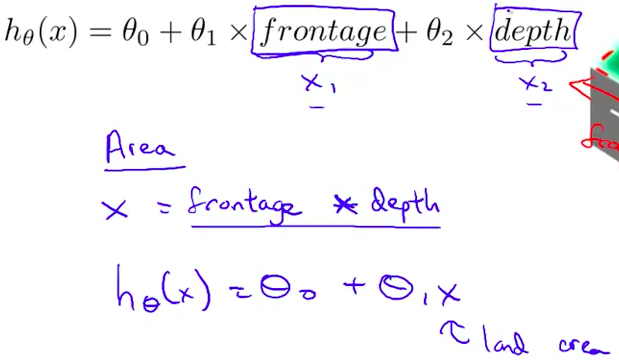 hθ(x) = θ0 + θ1 × frontage + θ2 × depth
x1 x2
Area
x = frontage * depth
hθ(x) = θ0 + θ1x
land area